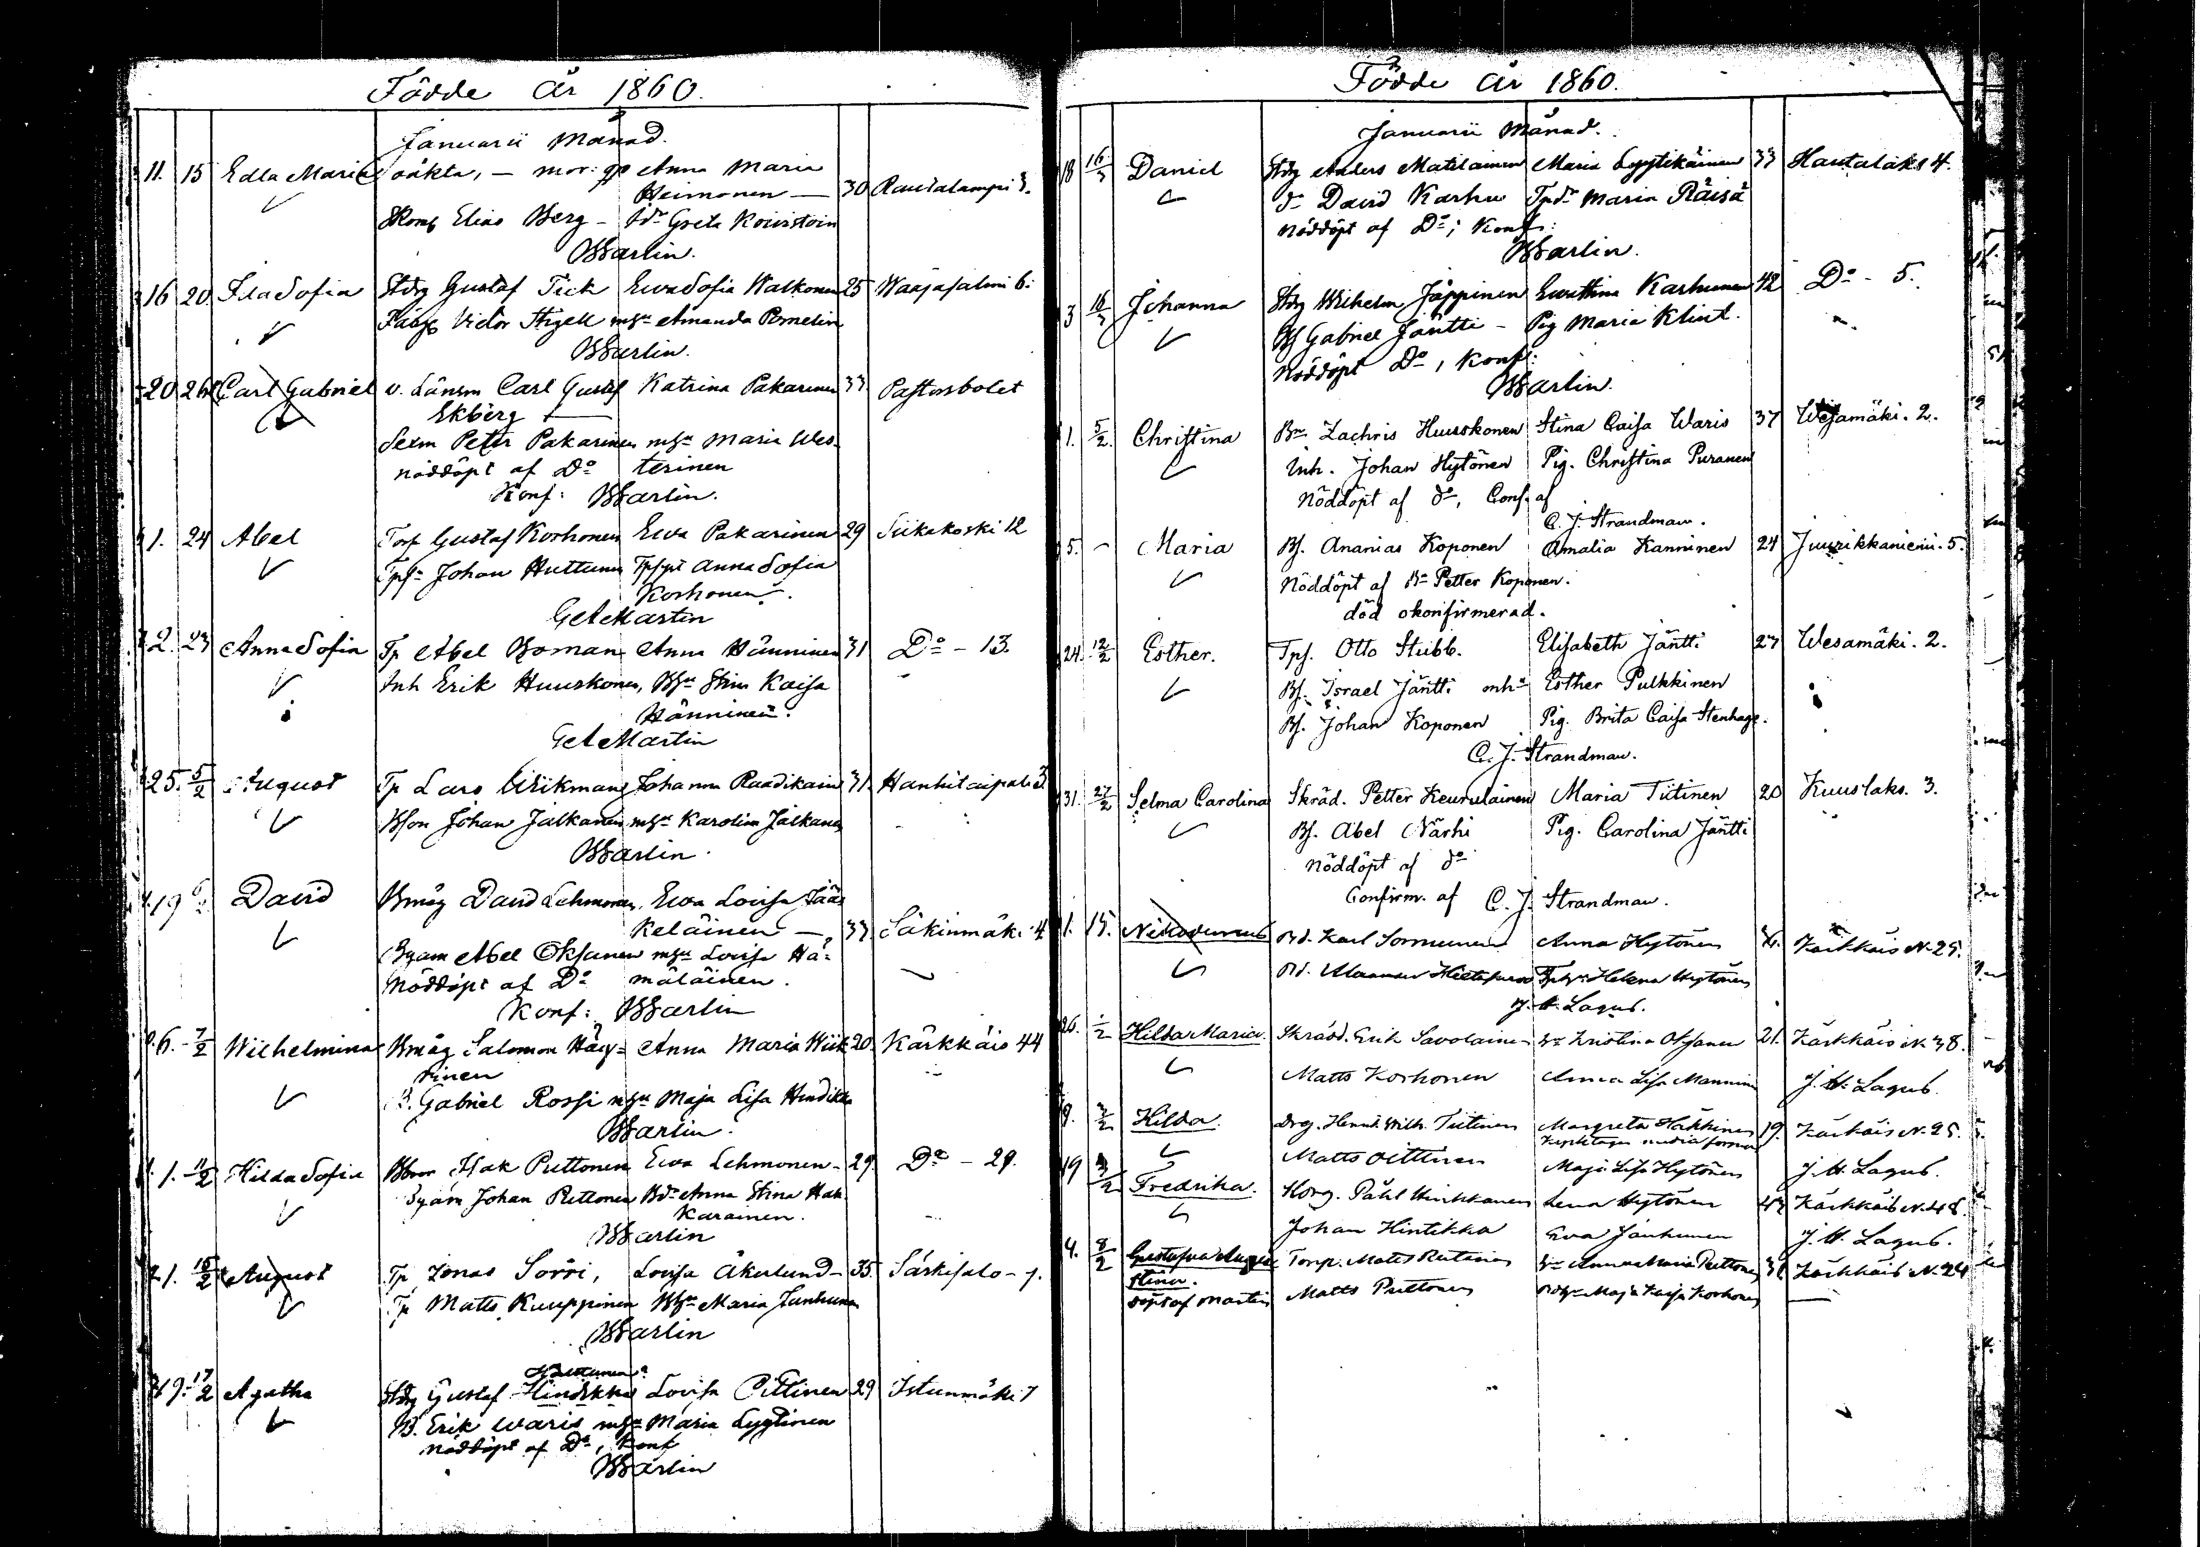 Födde år 1860.
Januarii månad.
11. 15 Edla Maria oäkta, — mor: Anna Maria
Heimonen — 30 Rautalampi 3.
Elias Berg — Greta Koivistoin
BWarlin.
16 20 Ida Sofia Gustaf Fick Ewa Sofia Walkonen 25 Waajasalmi 6.
Victor Stigell Amanda Pomelin
BWarlin.
20 26 Carl Gabriel v. Länsm Carl Gustaf Katrina Pakarinen 33 Pastorsbolet
Ekberg
Sexm Peter Pakarinen Maria Wes-
nöddöpt af Do terinen
Konf: BWarlin.
1. 24 Abel Torp Gustaf Korhonen Ewa Pakarinen 29 Siikakoski 12
Johan Huttunen Anna Sofia
Korhonen.
Martin
2. 23 Anna Sofia Tp Abel Boman Anna Hänninen 31 Do - 13.
Inh Erik Huuskonen, Stina Kaisa
Hänninen.
Martin
25. 5/2 August Tp Lars Wikman Johanna Raadikain 31. Hankitaipale 3
Johan Jalkanen Karolina Jalkanen
BWarlin.
19 6/2 David Bmåg David Lehmonen, Ewa Lovisa Jää-
keläinen — 33 Säkinmäki 4
Abel Oksanen Lovisa Hä-
nöddöpt af Do mäläinen.
Konf: BWarlin
6. 7/2 Wilhelmina Bmåg Salomon Häy- Anna Maria Wiik 20 Kärkkäis 44
rinen
B. Gabriel Rossi Maja Lisa Hindikka
BWarlin.
1. 11/2 Hilda Sofia Isak Puttonen Ewa Lehmonen - 29 Do - 29.
Johan Puttonen Anna Stina Hak-
karainen.
BWarlin
1. 15/2 August Tp Jonas Sorri, Lovisa Åkerlund - 35. Särkisalo - 7.
Tp Matts Kuuppinen Maria Janhunen
BWarlin
19. 17/2 Agatha Gustaf Hindikka Lovisa Pittinen 29 Istunmäki 7
B. Erik Waris Maria Lyytinen
nöddöpt af Do, Konf
BWarlin
Födde år 1860.
Januarii månad.
18 16/3 Daniel Anders Matilainen Maria Lyytikäinen 33 Hautalaks 4.
David Karhu Maria Räisä
nöddöpt af Do; Konf:
BWarlin.
3 16/3 Johanna Wilhelm Jäppinen Ewa Stina Karhunen 42 Do - 5.
Gabriel Jäntti - Pig Maria Klint.
nöddöpt Do, Konf:
BWarlin.
1. 5/2 Christina Bn Zachris Huuskonen Stina Caisa Waris 37 Wesamäki. 2.
Inh. Johan Hytönen Pig. Christina Puranen
Nöddöpt af do, Conf. af
C. J. Strandman.
5. - Maria Bs. Ananias Koponen Amalia Kanninen 24 Juurikkaniemi. 5.
Nöddöpt af Bn Petter Koponen.
död okonfirmerad.
24. 12/2 Esther. Tps. Otto Stubb. Elisabeth Jäntti 27 Wesamäki. 2.
Bs. Israel Jäntti Esther Pulkkinen
Bs. Johan Koponen Pig. Brita Caisa Stenhage.
C. J. Strandman.
31. 27/2 Selma Carolina Skräd. Petter Keurulainen Maria Tiitinen 20 Kuuslaks. 3.
Bs. Abel Närhi Pig. Carolina Jäntti
Nöddöpt af do
Confirm. af C. J. Strandman.
1. 15. Nikodemus Karl Sormunen Anna Hytönen Kärkkäis N. 25.
Helena Hytönen
J. H. Lagus.
26. 1/2 Hilda Maria. Skrädd. Erik Savolainen Kristina Oksanen 21. Kärkkäis N. 38.
Matts Korhonen Anna Lisa Manninen J. H. Lagus
8. 3/2 Hilda. Drg. Henrik Wilh. Tiitinen Margreta Häkkinen 19. Kärkäis N. 25.
Matts Oittinen Maja Lisa Hytönen J. H. Lagus.
19 3/2 Fredrika. Påhl Hinkkanen Lena Hytönen 43 Kärkkäis N. 48.
Johan Hintikka Eva Janhunen J. H. Lagus.
4. 8/2 Gustafva Torp. Matts Anna Maria Puttonen Kärkkäis N. 24
Stina.
döpt af Martin Matts Puttonen Maja Kaisa Korhonen